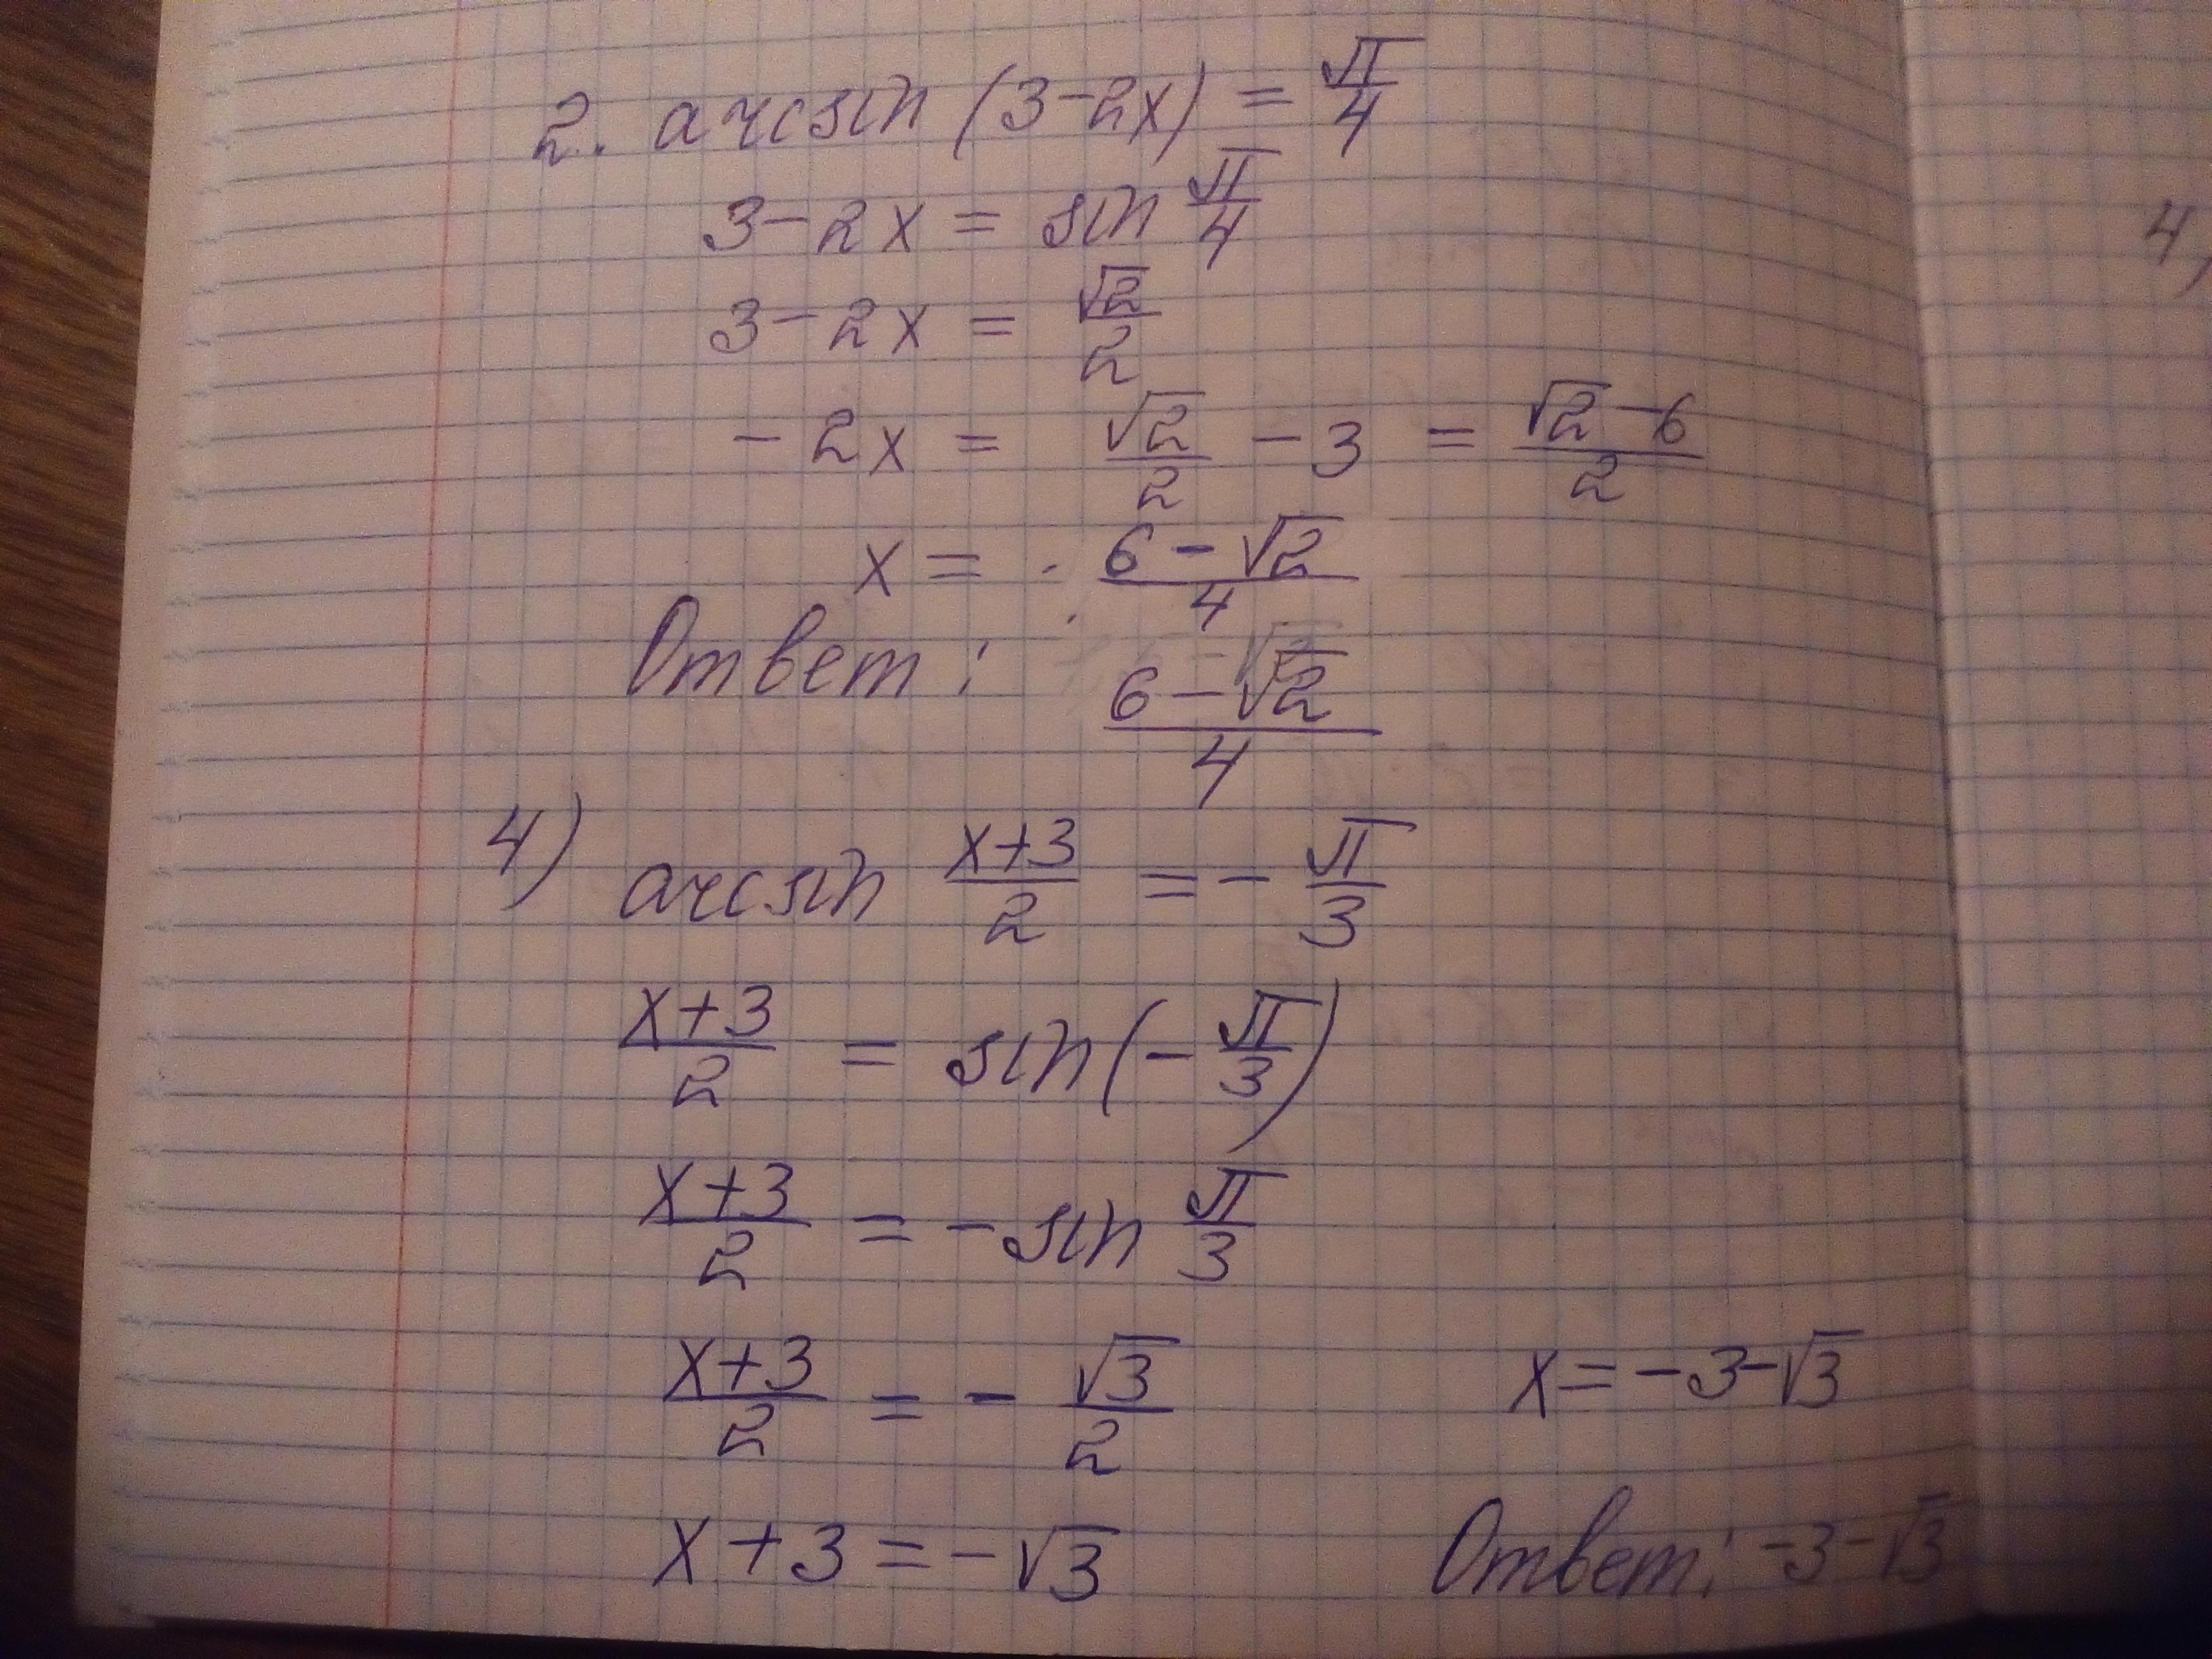 2. arcsin (3-2x) = π/4
3-2x = sin π/4
3-2x = √2/2
-2x = √2/2 - 3 = (√2-6)/2
x = (6-√2)/4
Ответ: (6-√2)/4
4) arcsin (x+3)/2 = - π/3
(x+3)/2 = sin(-π/3)
(x+3)/2 = -sin π/3
(x+3)/2 = - √3/2
x+3 = -√3
x = -3-√3
Ответ: -3-√3
4)